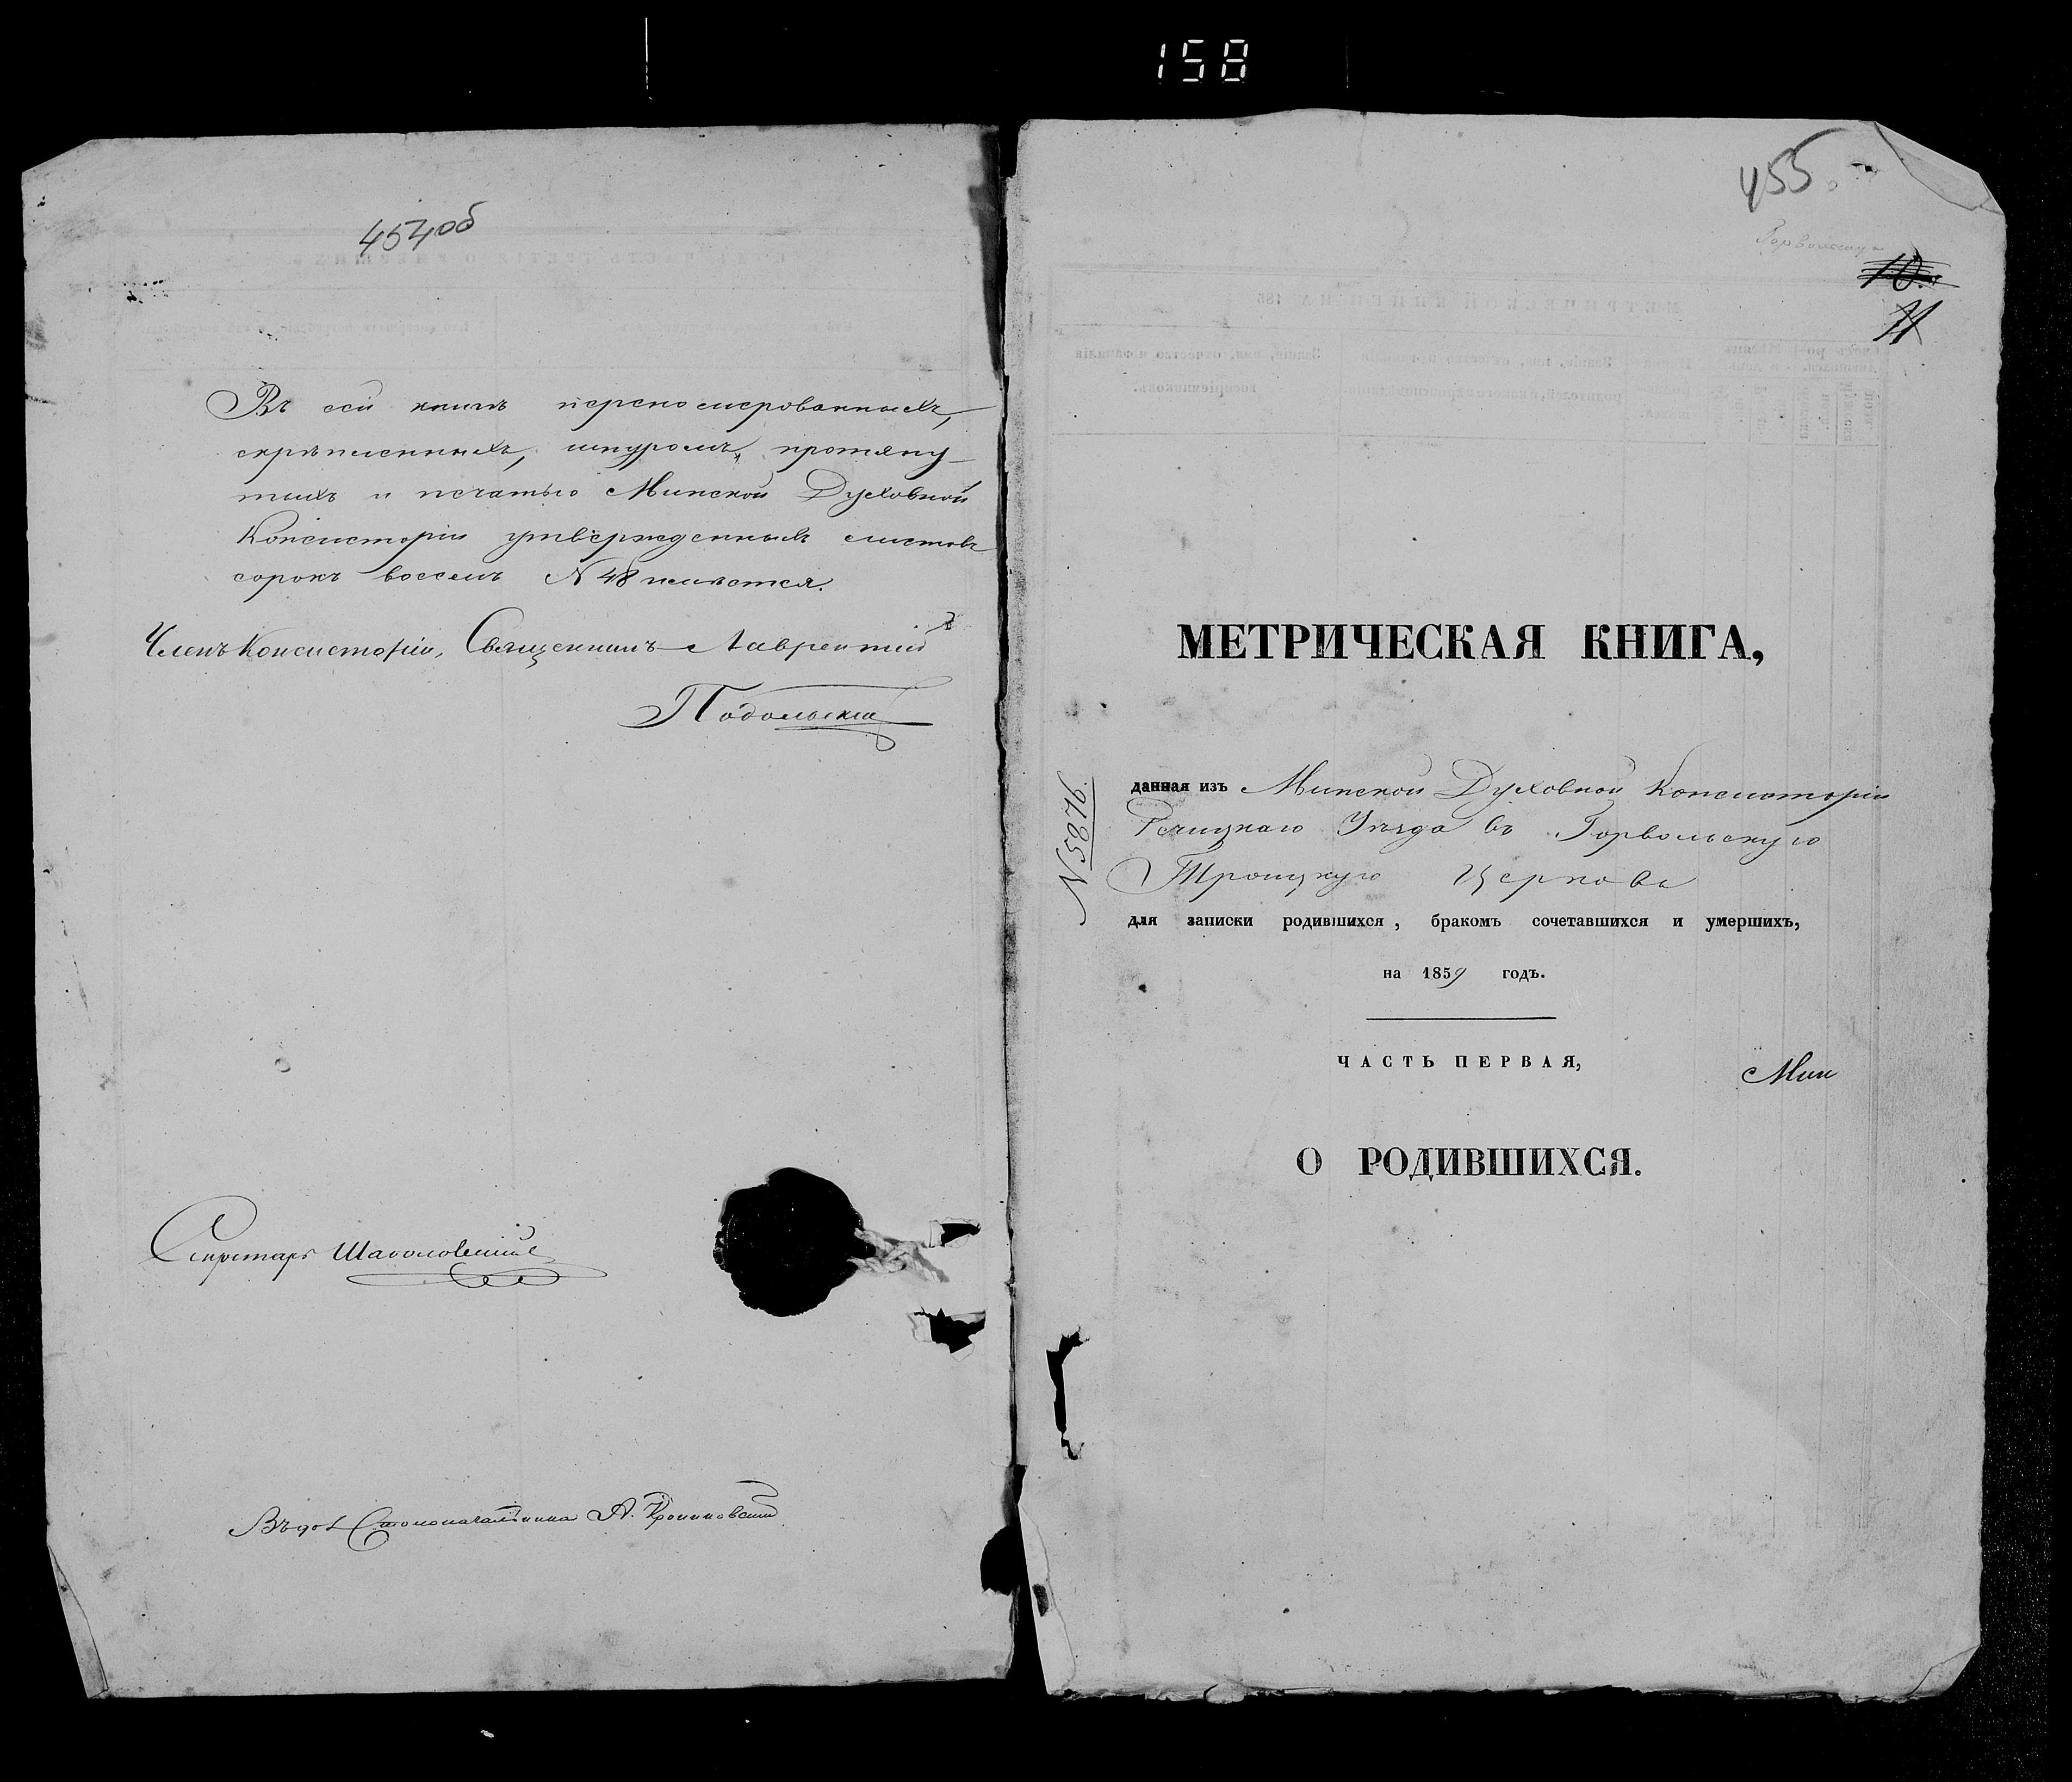 158
454 об
Въ сей книгѣ перенумерованныхъ,
скрѣпленныхъ, шнуромъ протяну-
тыхъ и печатью Минской Духовной
Консисторіи утвержденныхъ листовъ
сорокъ восемь № 48 имѣется.
Членъ Консисторіи, Священникъ Лаврентій
Подольскій
Секретарь
Столоначальника А.
455.
Горвольская
10.
11
МЕТРИЧЕСКАЯ КНИГА,
№ 5876.
данная изъ Минской Духовной Консисторіи
Речицкаго Уѣзда въ Горвольскую
Троицкую Церковь
для записки родившихся, бракомъ сочетавшихся и умершихъ,
на 1859 годъ.
ЧАСТЬ ПЕРВАЯ,
Мин
О РОДИВШИХСЯ.